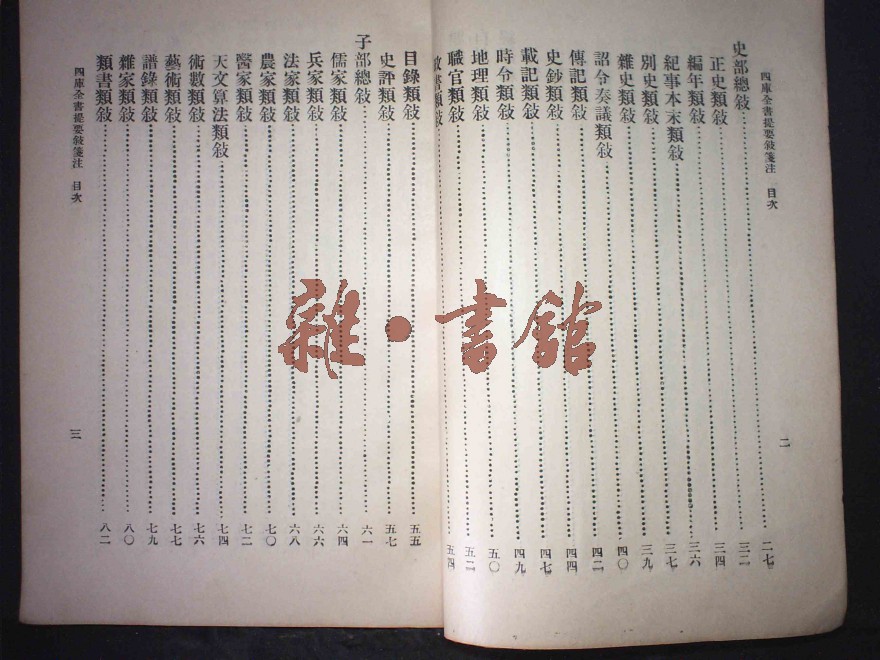 四庫全書提要敍箋注 目次 二
史部總敍……二七
正史類敍……三二
編年類敍……三四
紀事本末類敍……三六
別史類敍……三七
雜史類敍……三九
詔令奏議類敍……四〇
傳記類敍……四二
史鈔類敍……四四
載記類敍……四七
時令類敍……四九
地理類敍……五〇
職官類敍……五二
政書類敍……五四
目錄類敍……五五
史評類敍……五七
子部總敍……六一
儒家類敍……六四
兵家類敍……六六
法家類敍……六八
農家類敍……七〇
醫家類敍……七二
天文算法類敍……七四
術數類敍……七六
藝術類敍……七七
譜錄類敍……七九
雜家類敍……八〇
類書類敍……八二
四庫全書提要敍箋注 目次 三
雜·書館